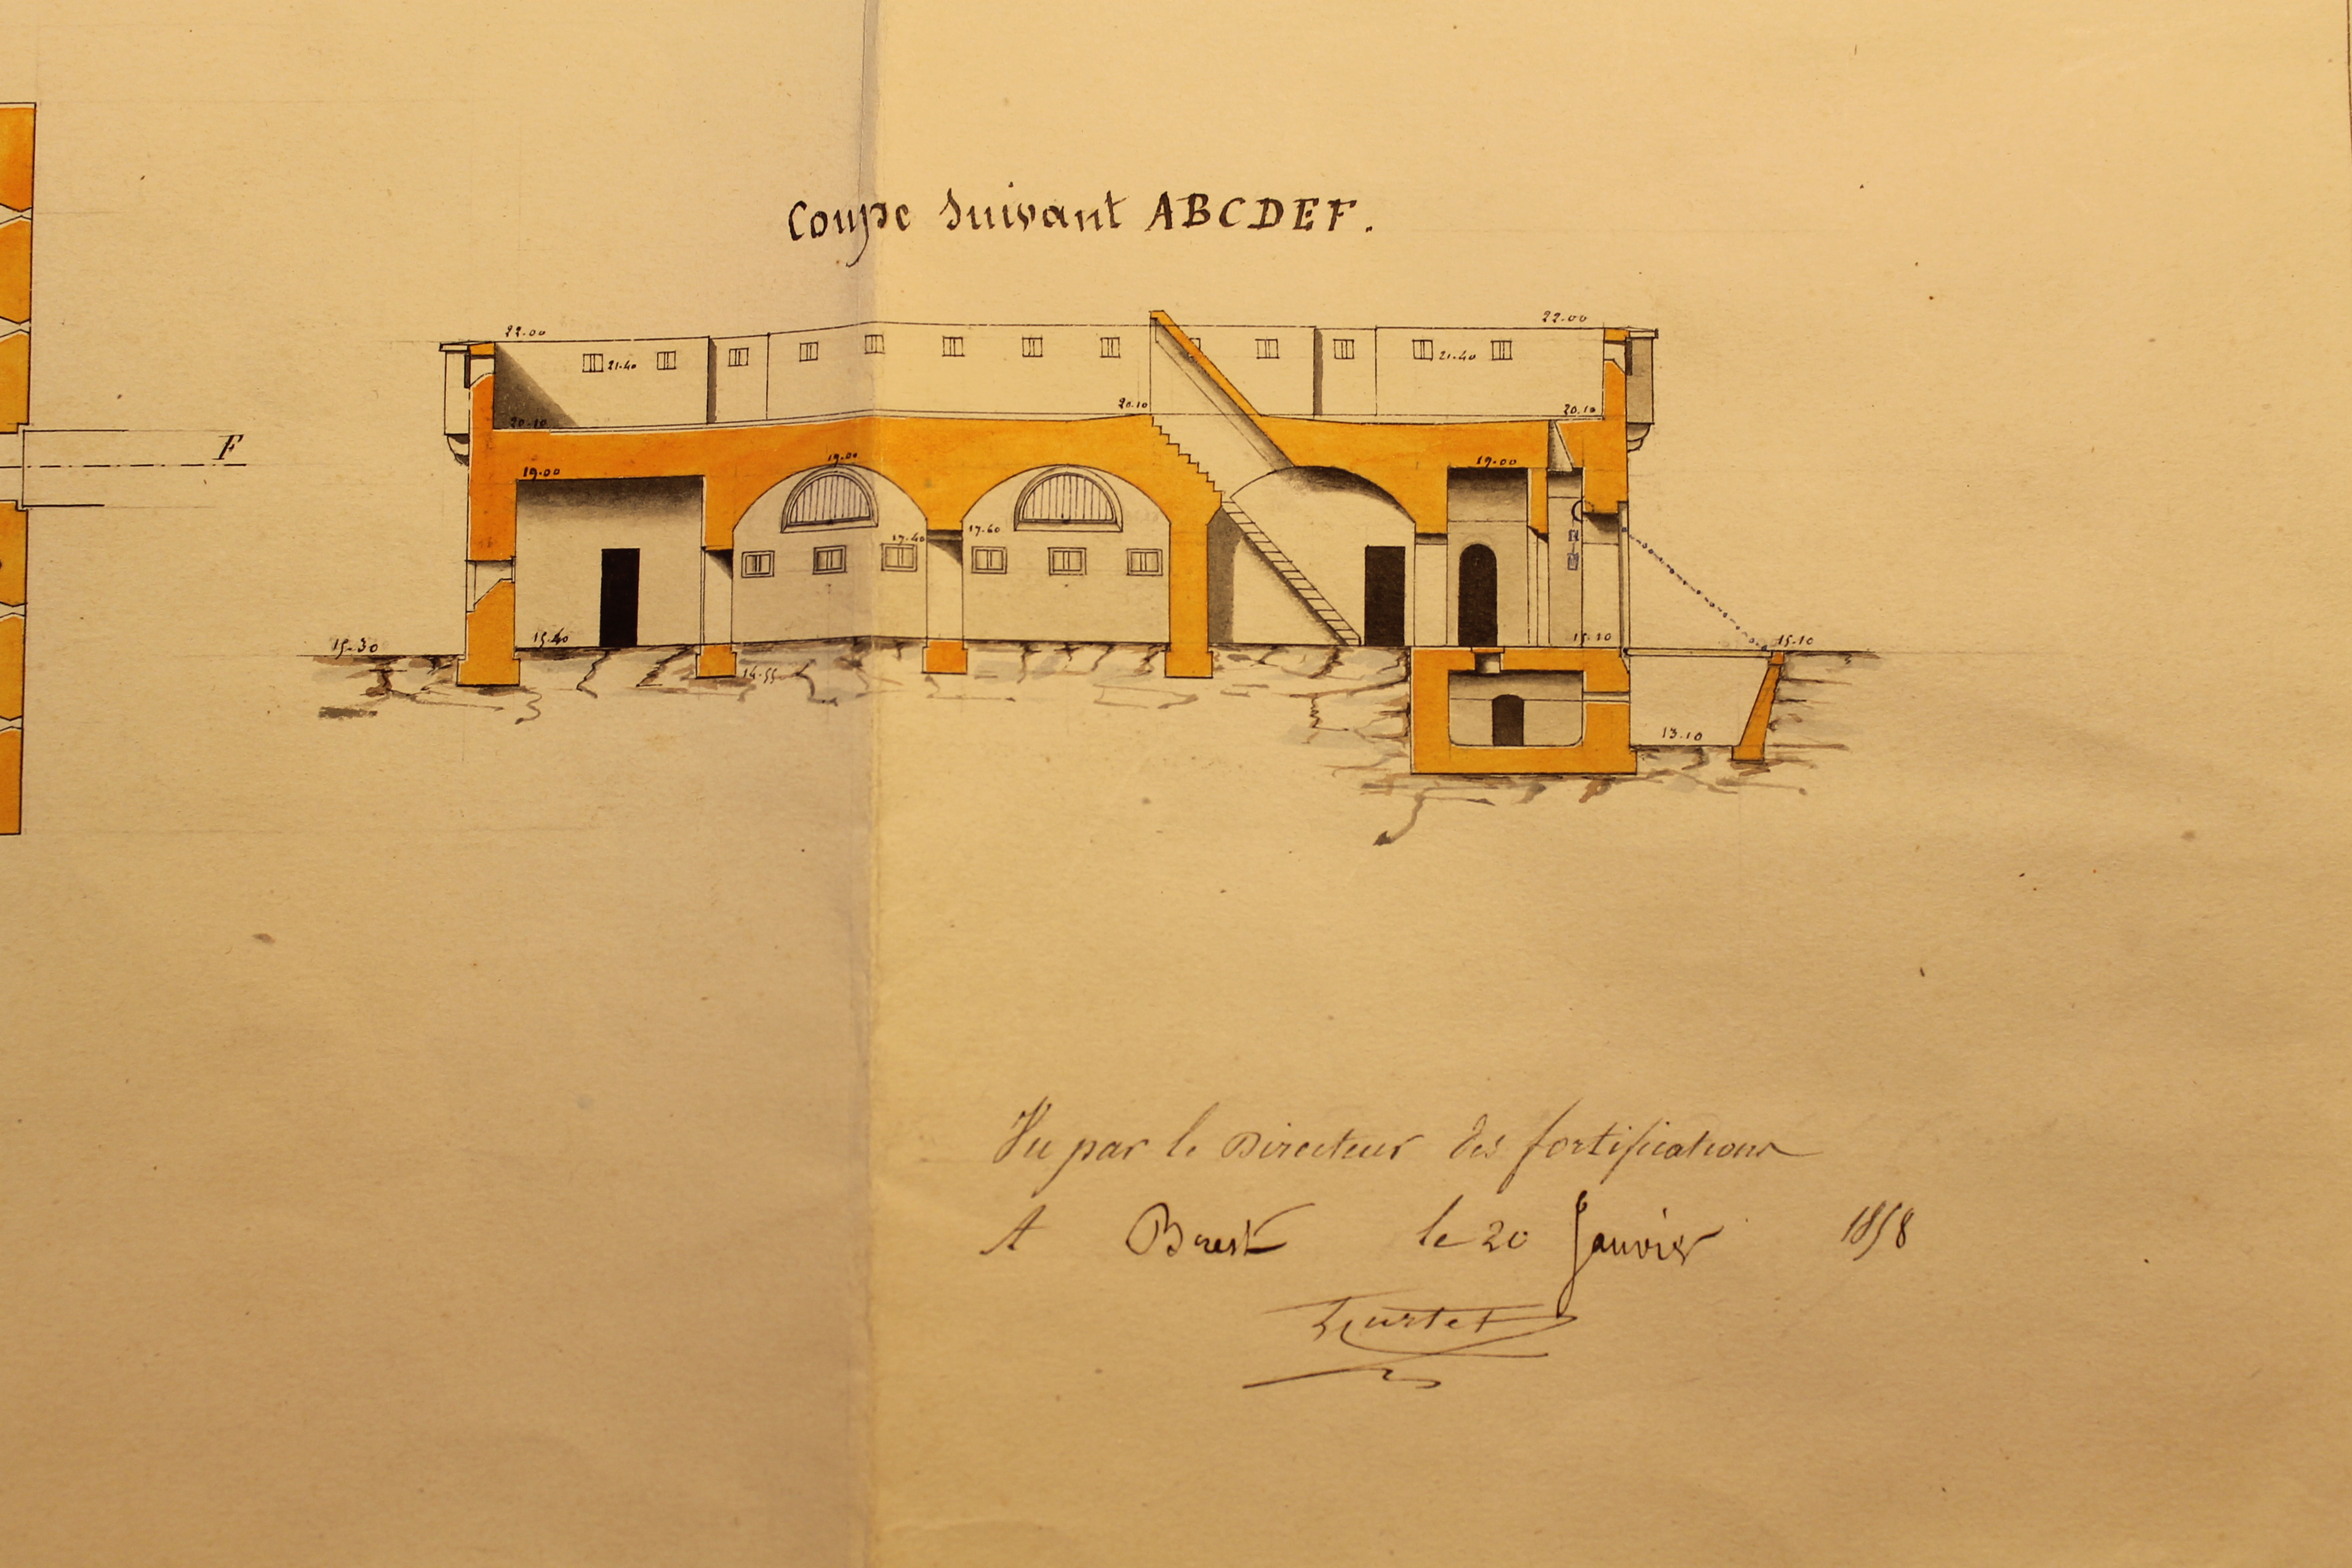 Coupe Suivant ABCDEF.
22.00
22.00
21.40
21.40
20.10
20.10
20.10
F
19.00
19.00
19.00
17.40
17.60
15.30
15.40
14.55
15.10
13.10
Vu par le Directeur des fortifications
A Brest le 20 Janvier 1858